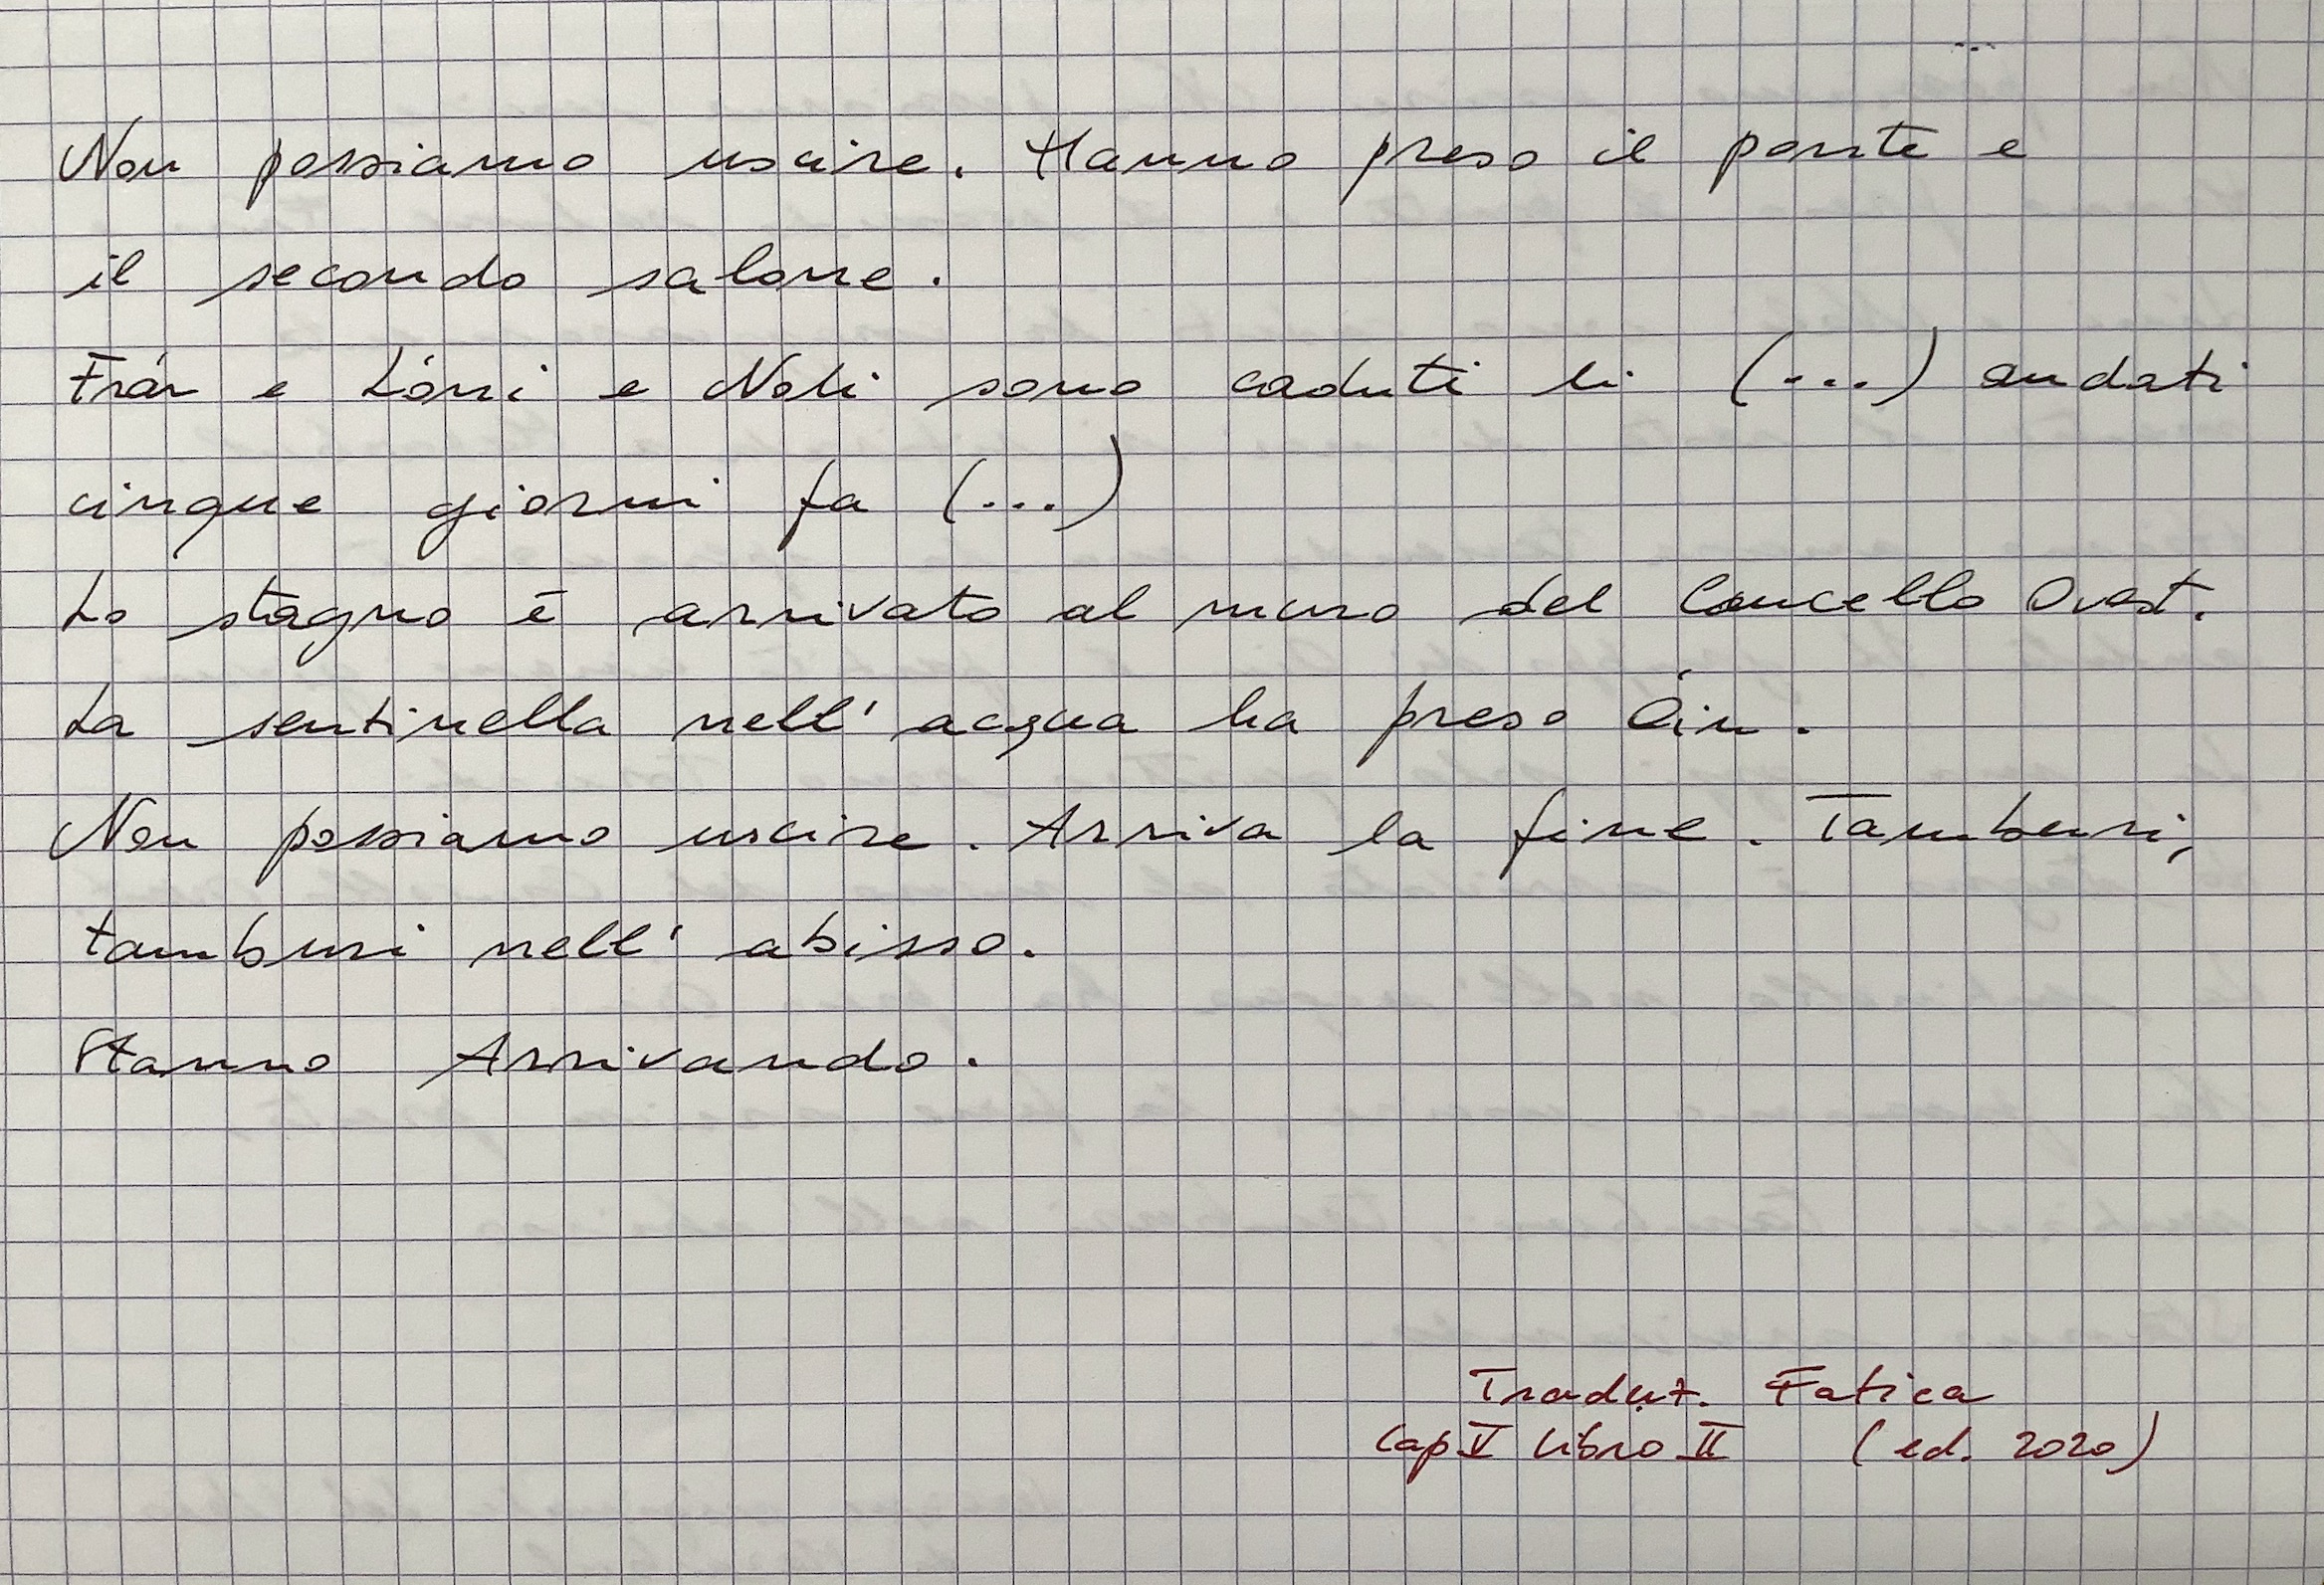 Non possiamo uscire. Hanno preso il ponte e
il secondo salone.
Frár e Lóni e Náli sono caduti lì (...) andati
cinque giorni fa (...)
Lo stagno è arrivato al muro del Cancello Ovest.
La sentinella nell'acqua ha preso Óin.
Non possiamo uscire. Arriva la fine. Tamburi,
tamburi nell'abisso.
Stanno Arrivando.
Tradut. Fatica
Cap V Libro II (ed. 2020)